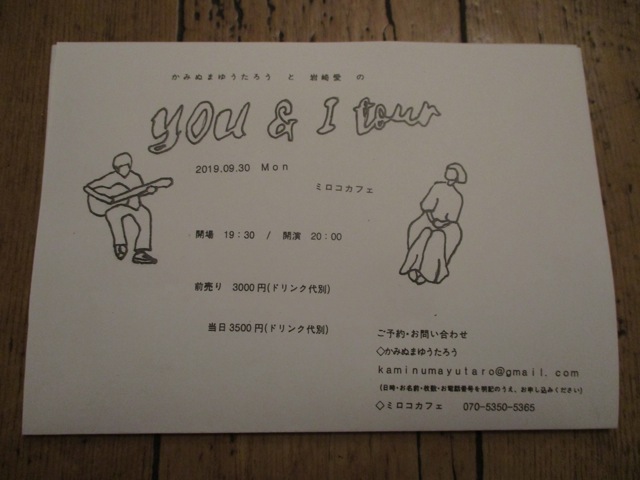 かみぬまゆうたろう と 岩崎愛 の
YOU & I tour
2019.09.30 Mon
ミロコカフェ
開場 19:30 / 開演 20:00
前売り 3000円(ドリンク代別)
当日3500円(ドリンク代別)
ご予約・お問い合わせ
◇かみぬまゆうたろう
kaminumayutaro@gmail.com
(日時・お名前・枚数・お電話番号を明記のうえ、お申し込みください)
◇ミロコカフェ 070-5350-5365